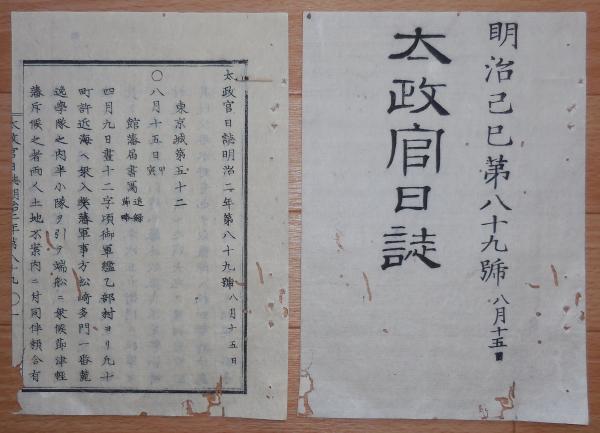 明治己巳第八十九號 八月十五日
太政官日誌
太政官日誌明治二年第八十九號 八月十五日
東京城第五十二
〇八月十五日 甲寅
館藩届書寫 追録節略
四月九日晝十二字頃御軍艦乙部村ヨリ凡十
町許近海ヘ乗入弊藩軍事方松崎多門一番
逸學隊之内半小隊ヲ引テ端船ニ乗候節津輕
藩斥候之者両人土地不案内ニ付同伴頼合有
太政官日誌明治二年第八十九 〇一